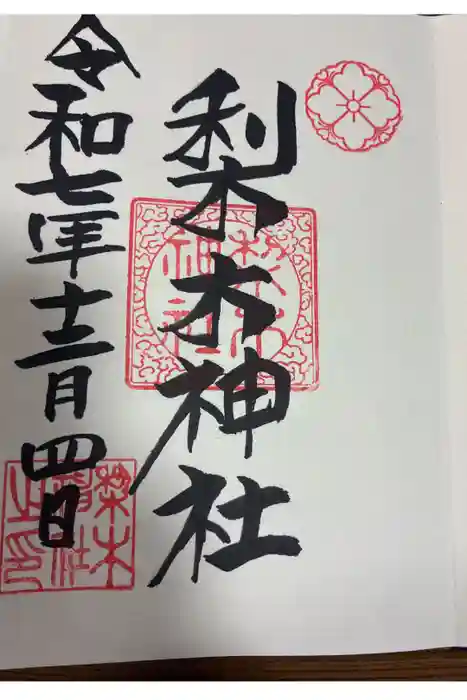 梨木神社
令和七年十二月四日
梨木神社
梨木神社之印